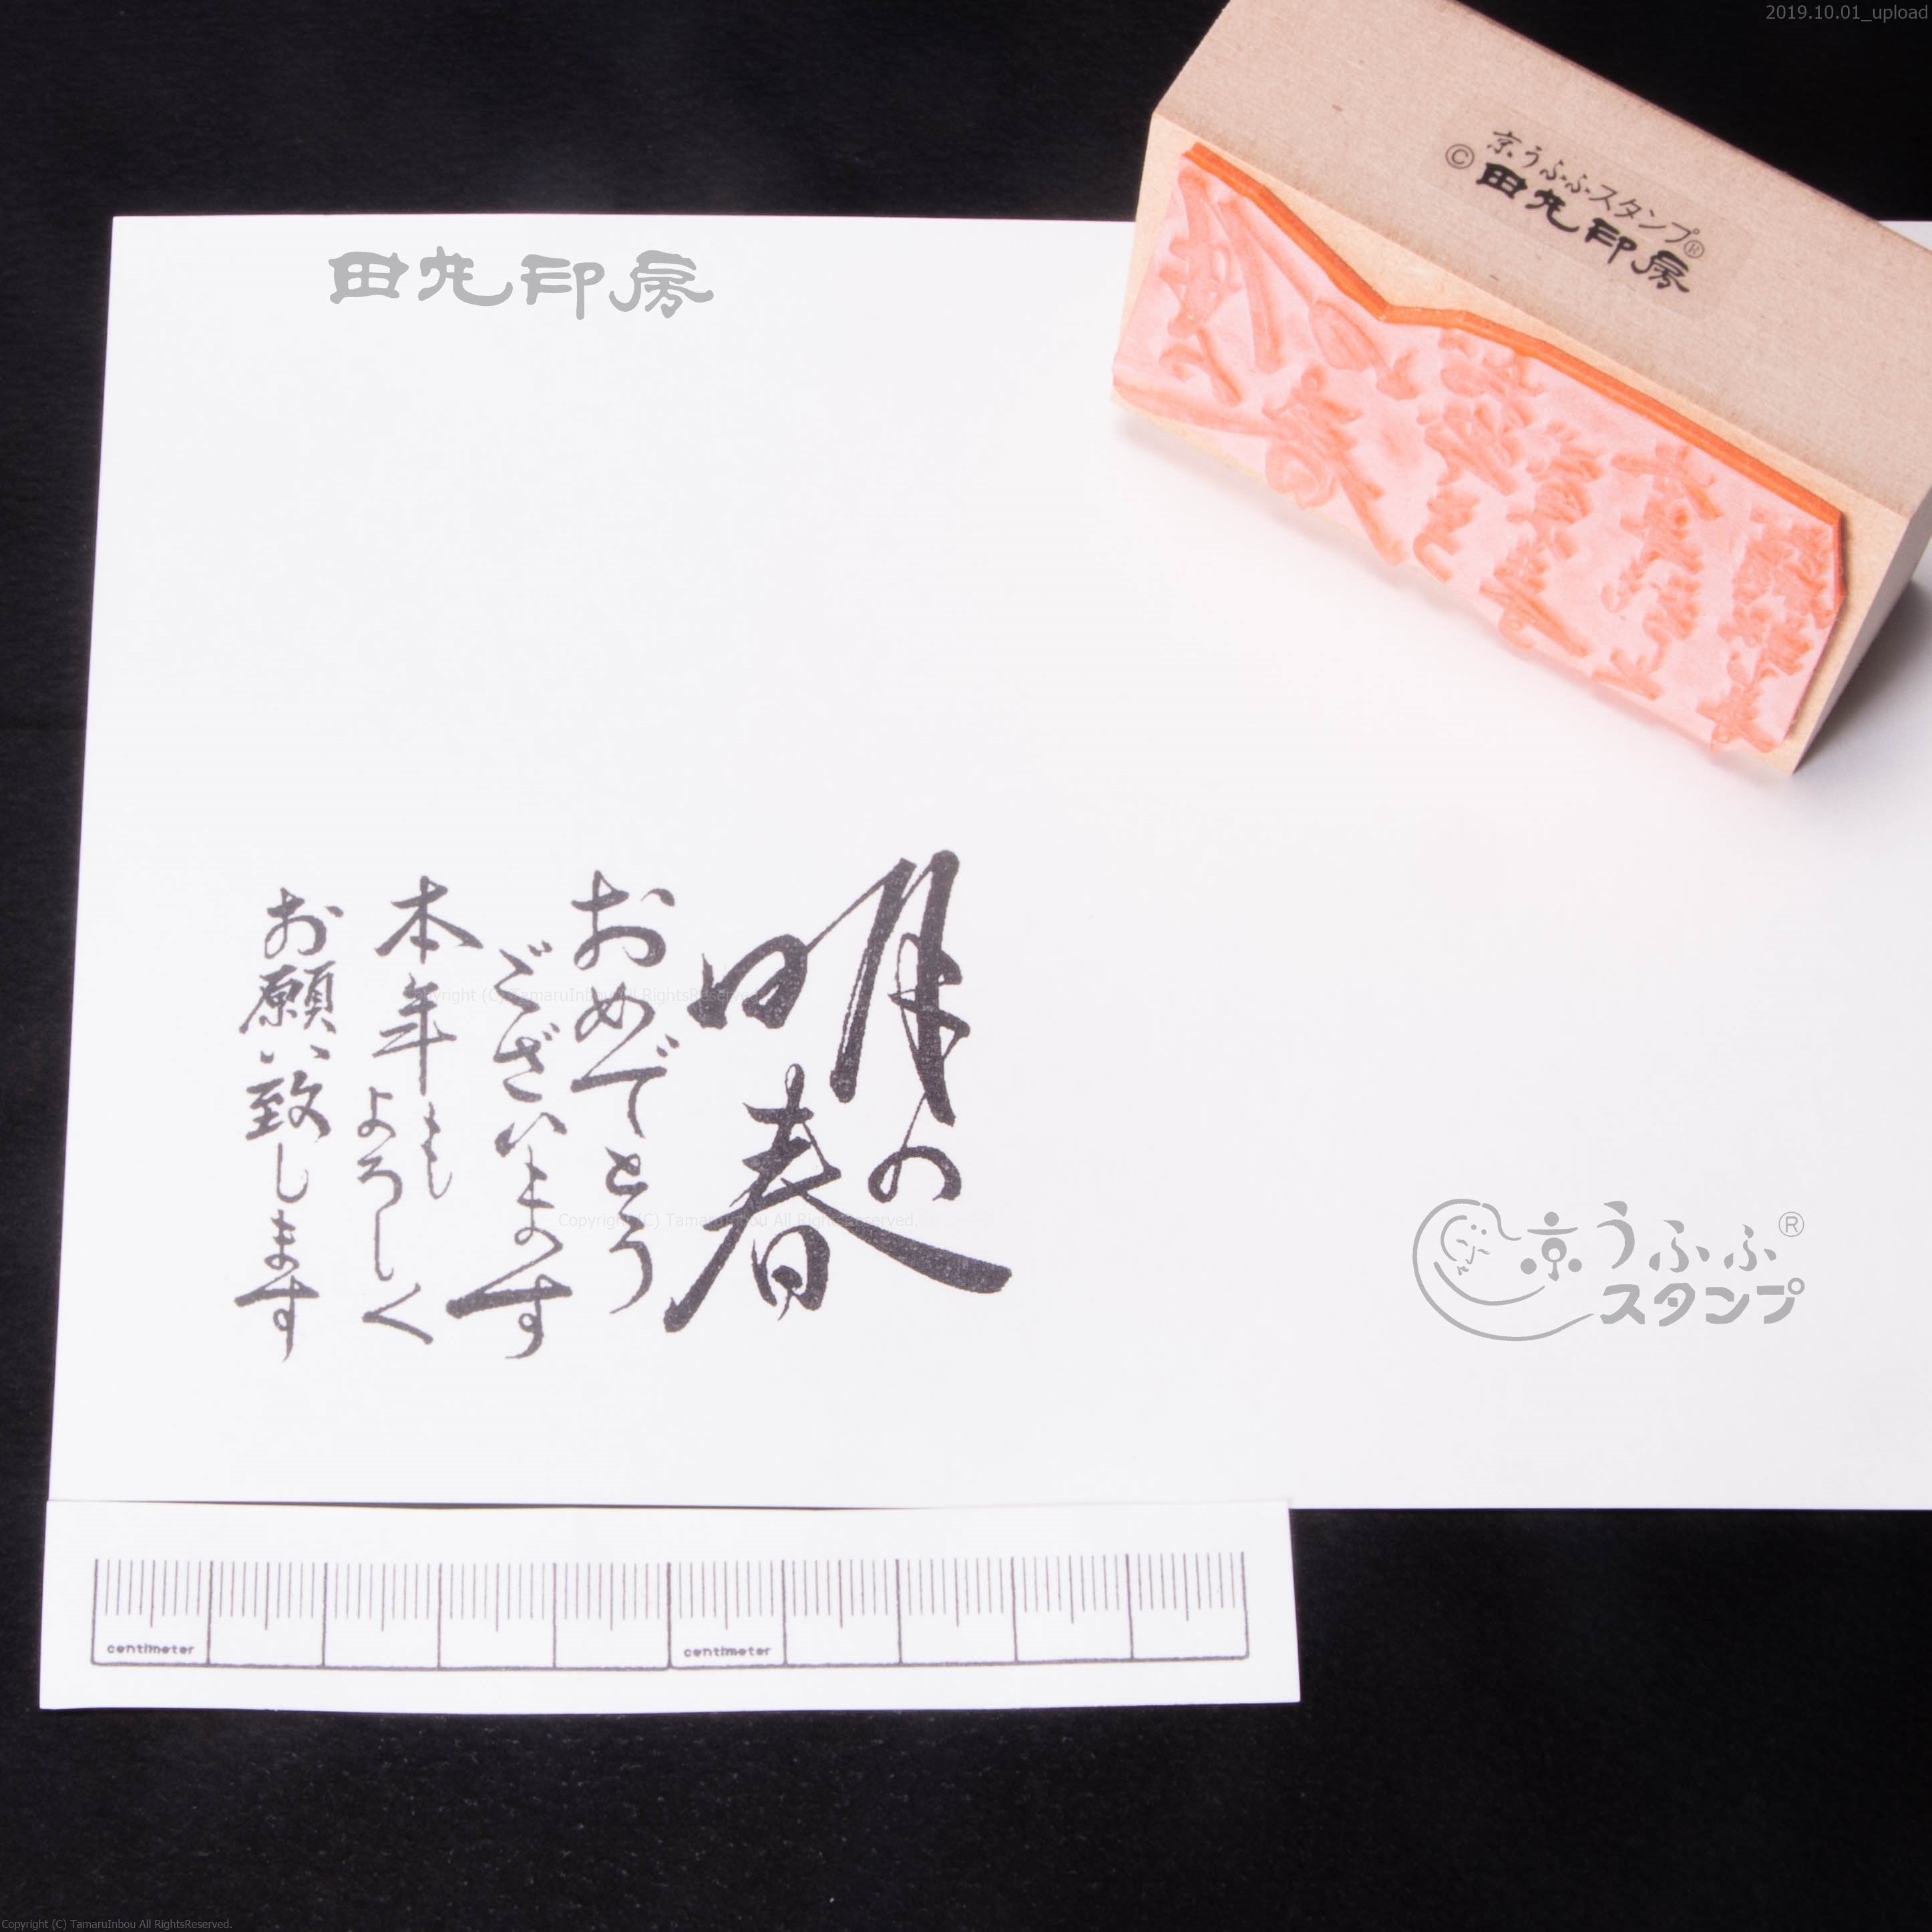 2019.10.01_upload
京うふふスタンプ®
© 田丸印房
田丸印房
明の
春
おめでとう
ございます
本年も
よろしく
お願い致します
Copyright (C) TamaruInbou All RightsReserved.
Copyright (C) TamaruInbou All RightsReserved.
京うふふ®
スタンプ
centimeter centimeter
Copyright (C) TamaruInbou All RightsReserved.